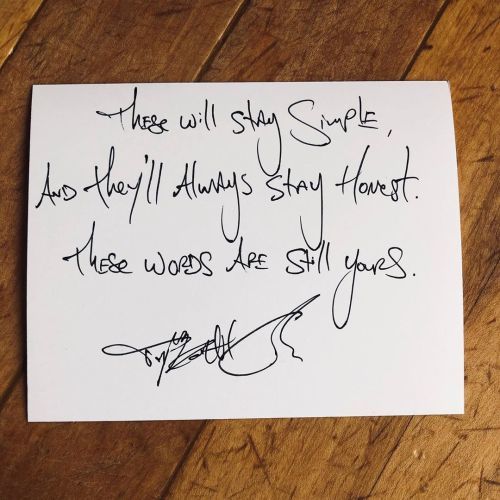 These will stay Simple,
And they'll Always stay Honest.
These words are still yours.